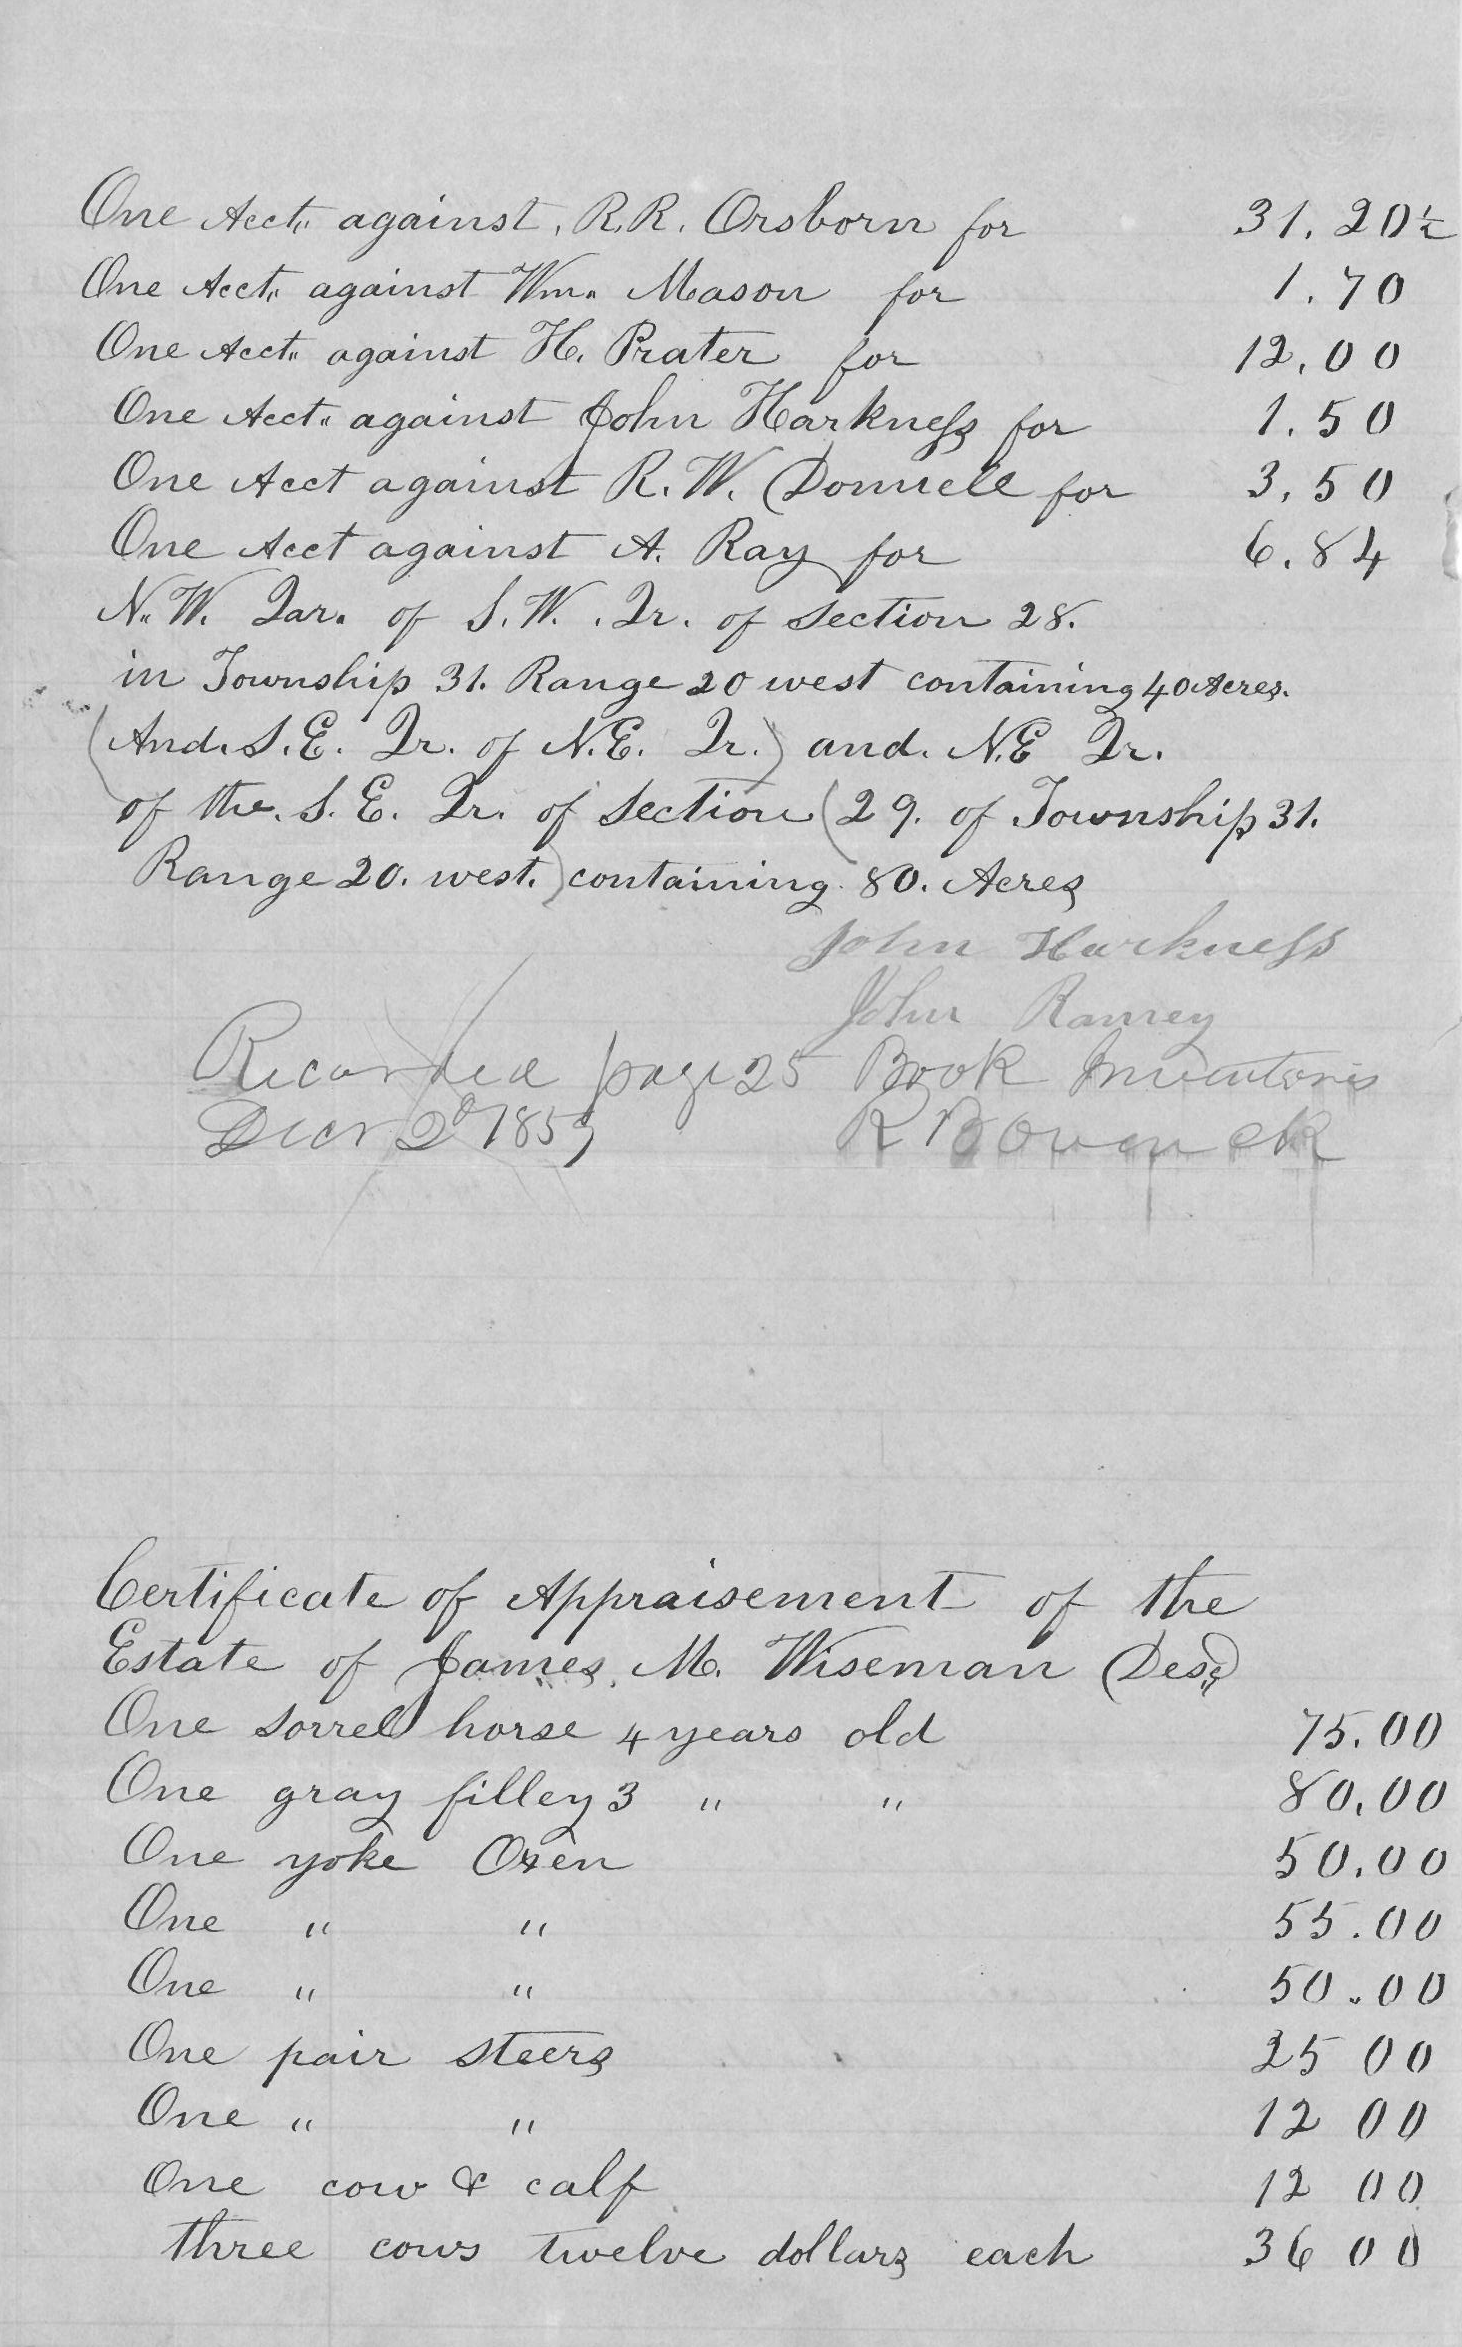 One Acct" against, R.R. Orsborn for 31.20½
One Acct" against Wm" Mason for 1.70
One Acct" against H. Prater for 12.00
One Acct" against John Harkness for 1.50
One Acct against R.W. Donnell for 3.50
One Acct against A. Ray for 6.84
N.W. Qar. of S.W. Qr. of section 28.
in Township 31. Range 20 west containing 40 Acres.
(And. S.E. Qr. of N.E. Qr.) and. N.E Qr.
of the. S.E. Qr. of section (29. of Township 31.
Range 20. west.) containing 80. Acres
John Harkness
John Ramey
Recorded page 25 Book Inventories
Decr 2d 1859 R B Owen Ck
Certificate of Appraisement of the
Estate of James M. Wiseman Desd
One sorrel horse 4 years old 75.00
One gray filley 3 " " 80.00
One yoke Oxen 50.00
One " " 55.00
One " " 50.00
One pair steers 25 00
One " " 12 00
One cow & calf 12 00
three cows twelve dollars each 36 00